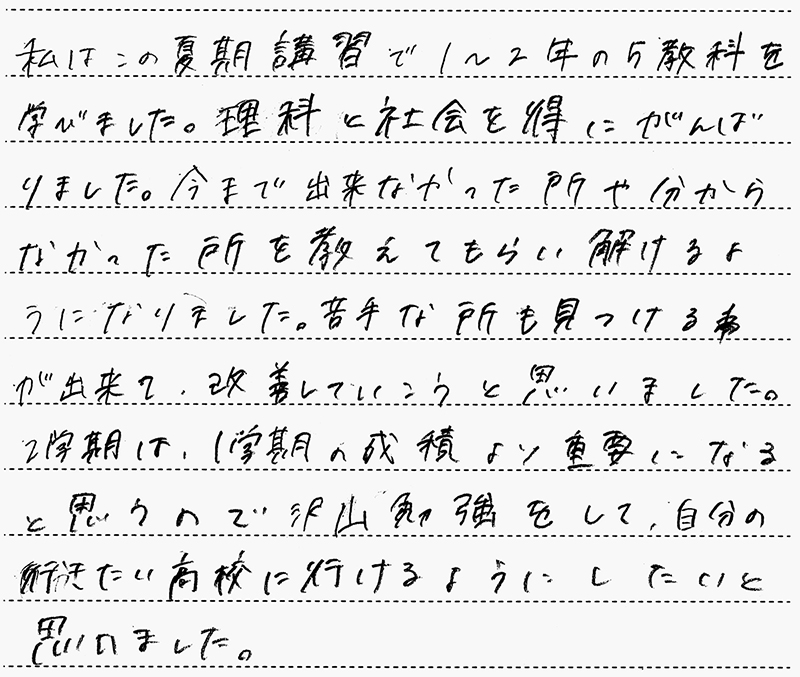 私はこの夏期講習で1〜2年の5教科を
学びました。理科と社会を得にがんば
りました。今まで出来なかった所や分から
なかった所を教えてもらい解けるよ
うになりました。苦手な所も見つける事
が出来て、改善していこうと思いました。
2学期は、1学期の成積より重要になる
と思うので沢山勉強をして、自分の
行きたい高校に行けるようにしたいと
思いました。